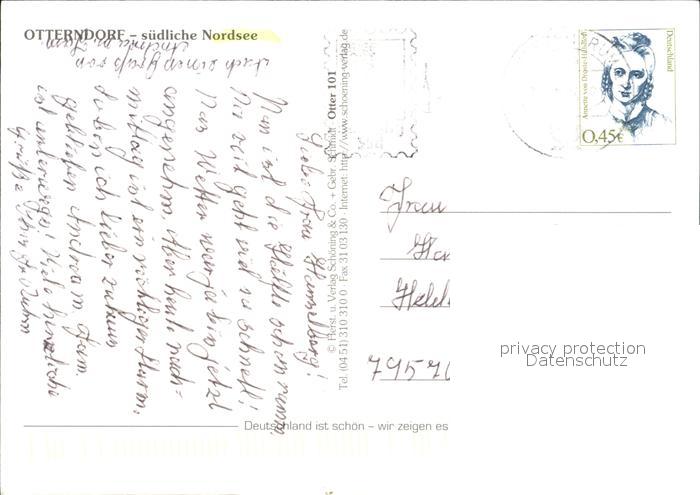 OTTERNDORF – südliche Nordsee
Liebe Frau
Nun ist die Hälfte schon rum
Die Zeit geht viel zu schnell!
Das Wetter war ja bis jetzt
angenehm. Aber heut nach-
mittag ist ein richtiger Sturm.
Haben ich lieber zuhaus
geblieben. Andrea m. Fam.
ist unterwegs! Viele herzliche
Grüße Ihre
Auch einen Gruß von
Andrea m. Fam.
© Herst. u. Verlag Schöning & Co. + Gebr. Schmidt Otter 101
Tel. (04 51) 310 310 0 Fax 31 03 130 Internet: http://www.schoening-verlag.de
Deutschland
Annette von Droste-Hülshoff
0,45€
Frau
795
privacy protection
Datenschutz
Deutschland ist schön – wir zeigen es